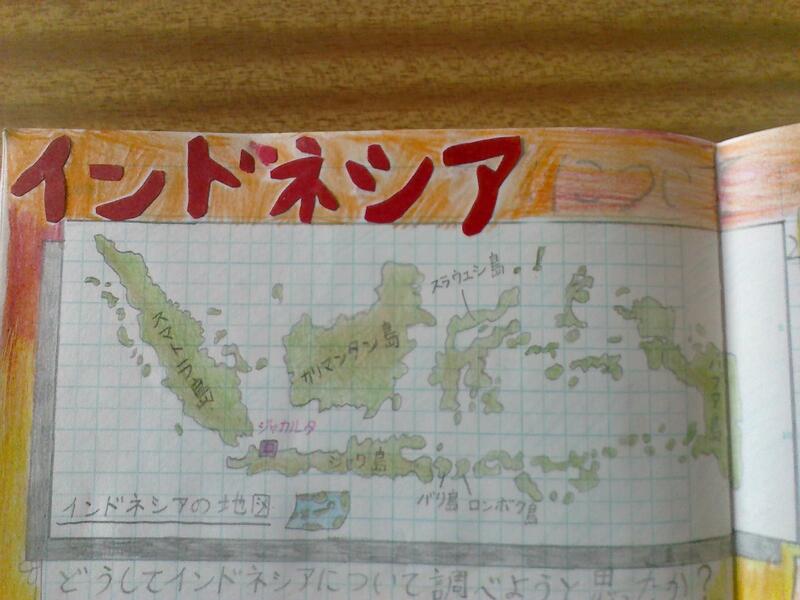 インドネシア について
スラウェシ島
スマトラ島
カリマンタン島
パプア島
ジャカルタ
ジャワ島
バリ島 ロンボク島
インドネシアの地図
どうしてインドネシアについて調べようと思ったか?